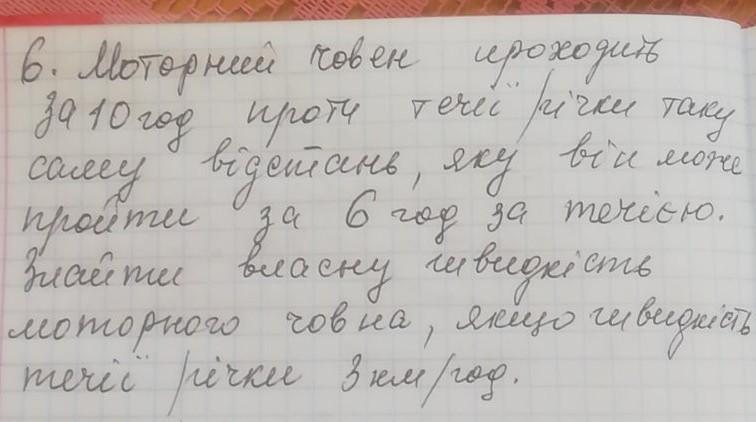 6. Моторний човен проходить
за 10 год проти течії річки таку
саму відстань, яку він може
пройти за 6 год за течією.
Знайти власну швидкість
моторного човна, якщо швидкість
течії річки 3 км/год.